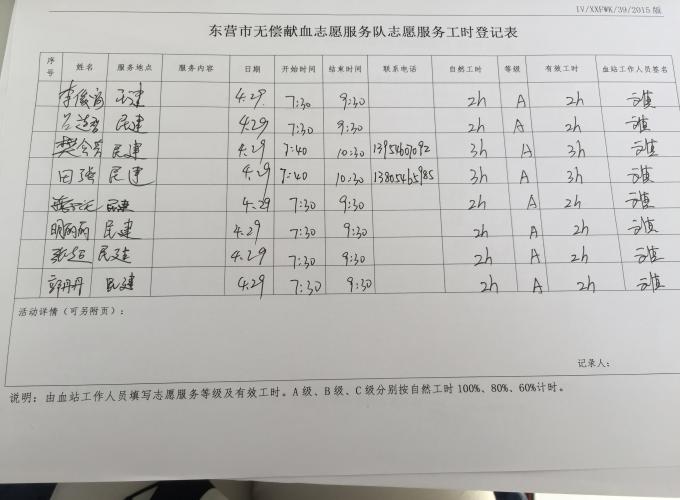 IV/XXFWK/39/2015版
东营市无偿献血志愿服务队志愿服务工时登记表
序号 姓名 服务地点 服务内容 日期 开始时间 结束时间 联系电话 自然工时 等级 有效工时 血站工作人员签名
民建 4.29 7:30 9:30 2h A 2h
民建 4.29 7:30 9:30 2h A 2h
民建 4.29 7:40 10:30 13954607092 3h A 3h
田强 民建 4.29 7:40 10:30 13805465985 3h A 3h
民建 4.29 7:30 9:30 2h A 2h
明丽丽 民建 4.29 7:30 9:30 2h A 2h
张超 民建 4.29 7:30 9:30 2h A 2h
郭丹丹 民建 4.29 7:30 9:30 2h A 2h
活动详情（可另附页）：
记录人：
说明：由血站工作人员填写志愿服务等级及有效工时。A级、B级、C级分别按自然工时100%、80%、60%计时。